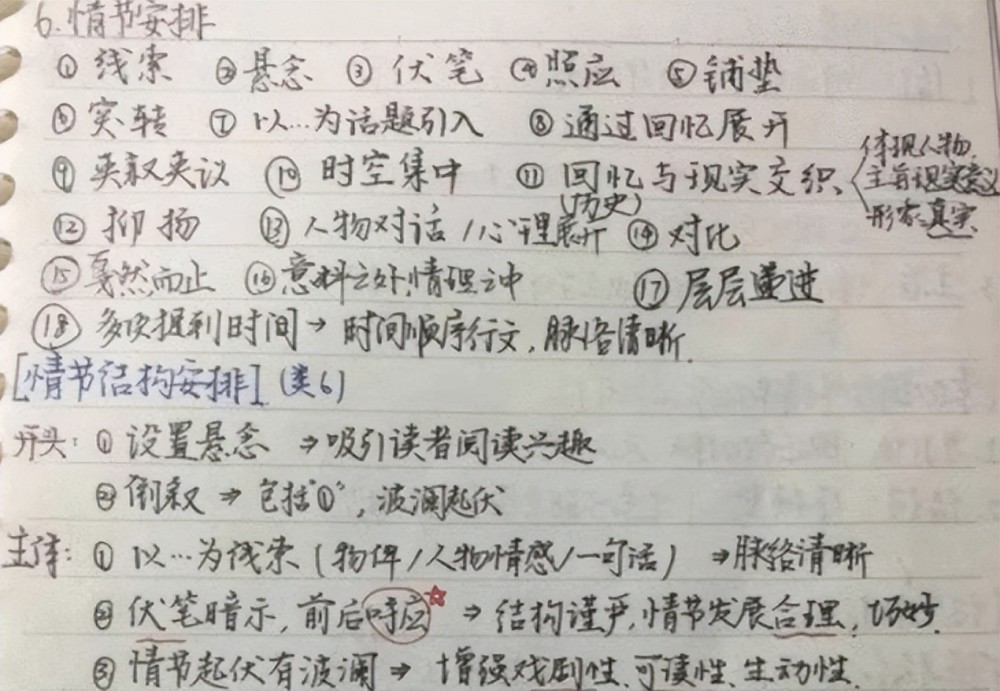 6.情节安排
① 线索 ② 悬念 ③ 伏笔 ④ 照应 ⑤ 铺垫
⑥ 突转 ⑦ 以…为话题引入 ⑧ 通过回忆展开
⑨ 夹叙夹议 ⑩ 时空集中 ⑪ 回忆与现实交织、
(历史)
体现人物
主旨现实意义
形象真实
⑫ 抑扬 ⑬ 人物对话/心理展开 ⑭ 对比
⑮ 戛然而止 ⑯ 意料之外,情理之中 ⑰ 层层递进
⑱ 多次提到时间→时间顺序行文,脉络清晰.
[情节结构安排](类6)
开头:① 设置悬念 ⇒吸引读者阅读兴趣
② 倒叙 ⇒ 包括“①”,波澜起伏
主体:① 以…为线索(物件/人物情感/一句话) ⇒脉络清晰
② 伏笔暗示,前后呼应☆ ⇒ 结构谨严,情节发展合理,巧妙.
③ 情节起伏有波澜 ⇒ 增强戏剧性、可读性、生动性.